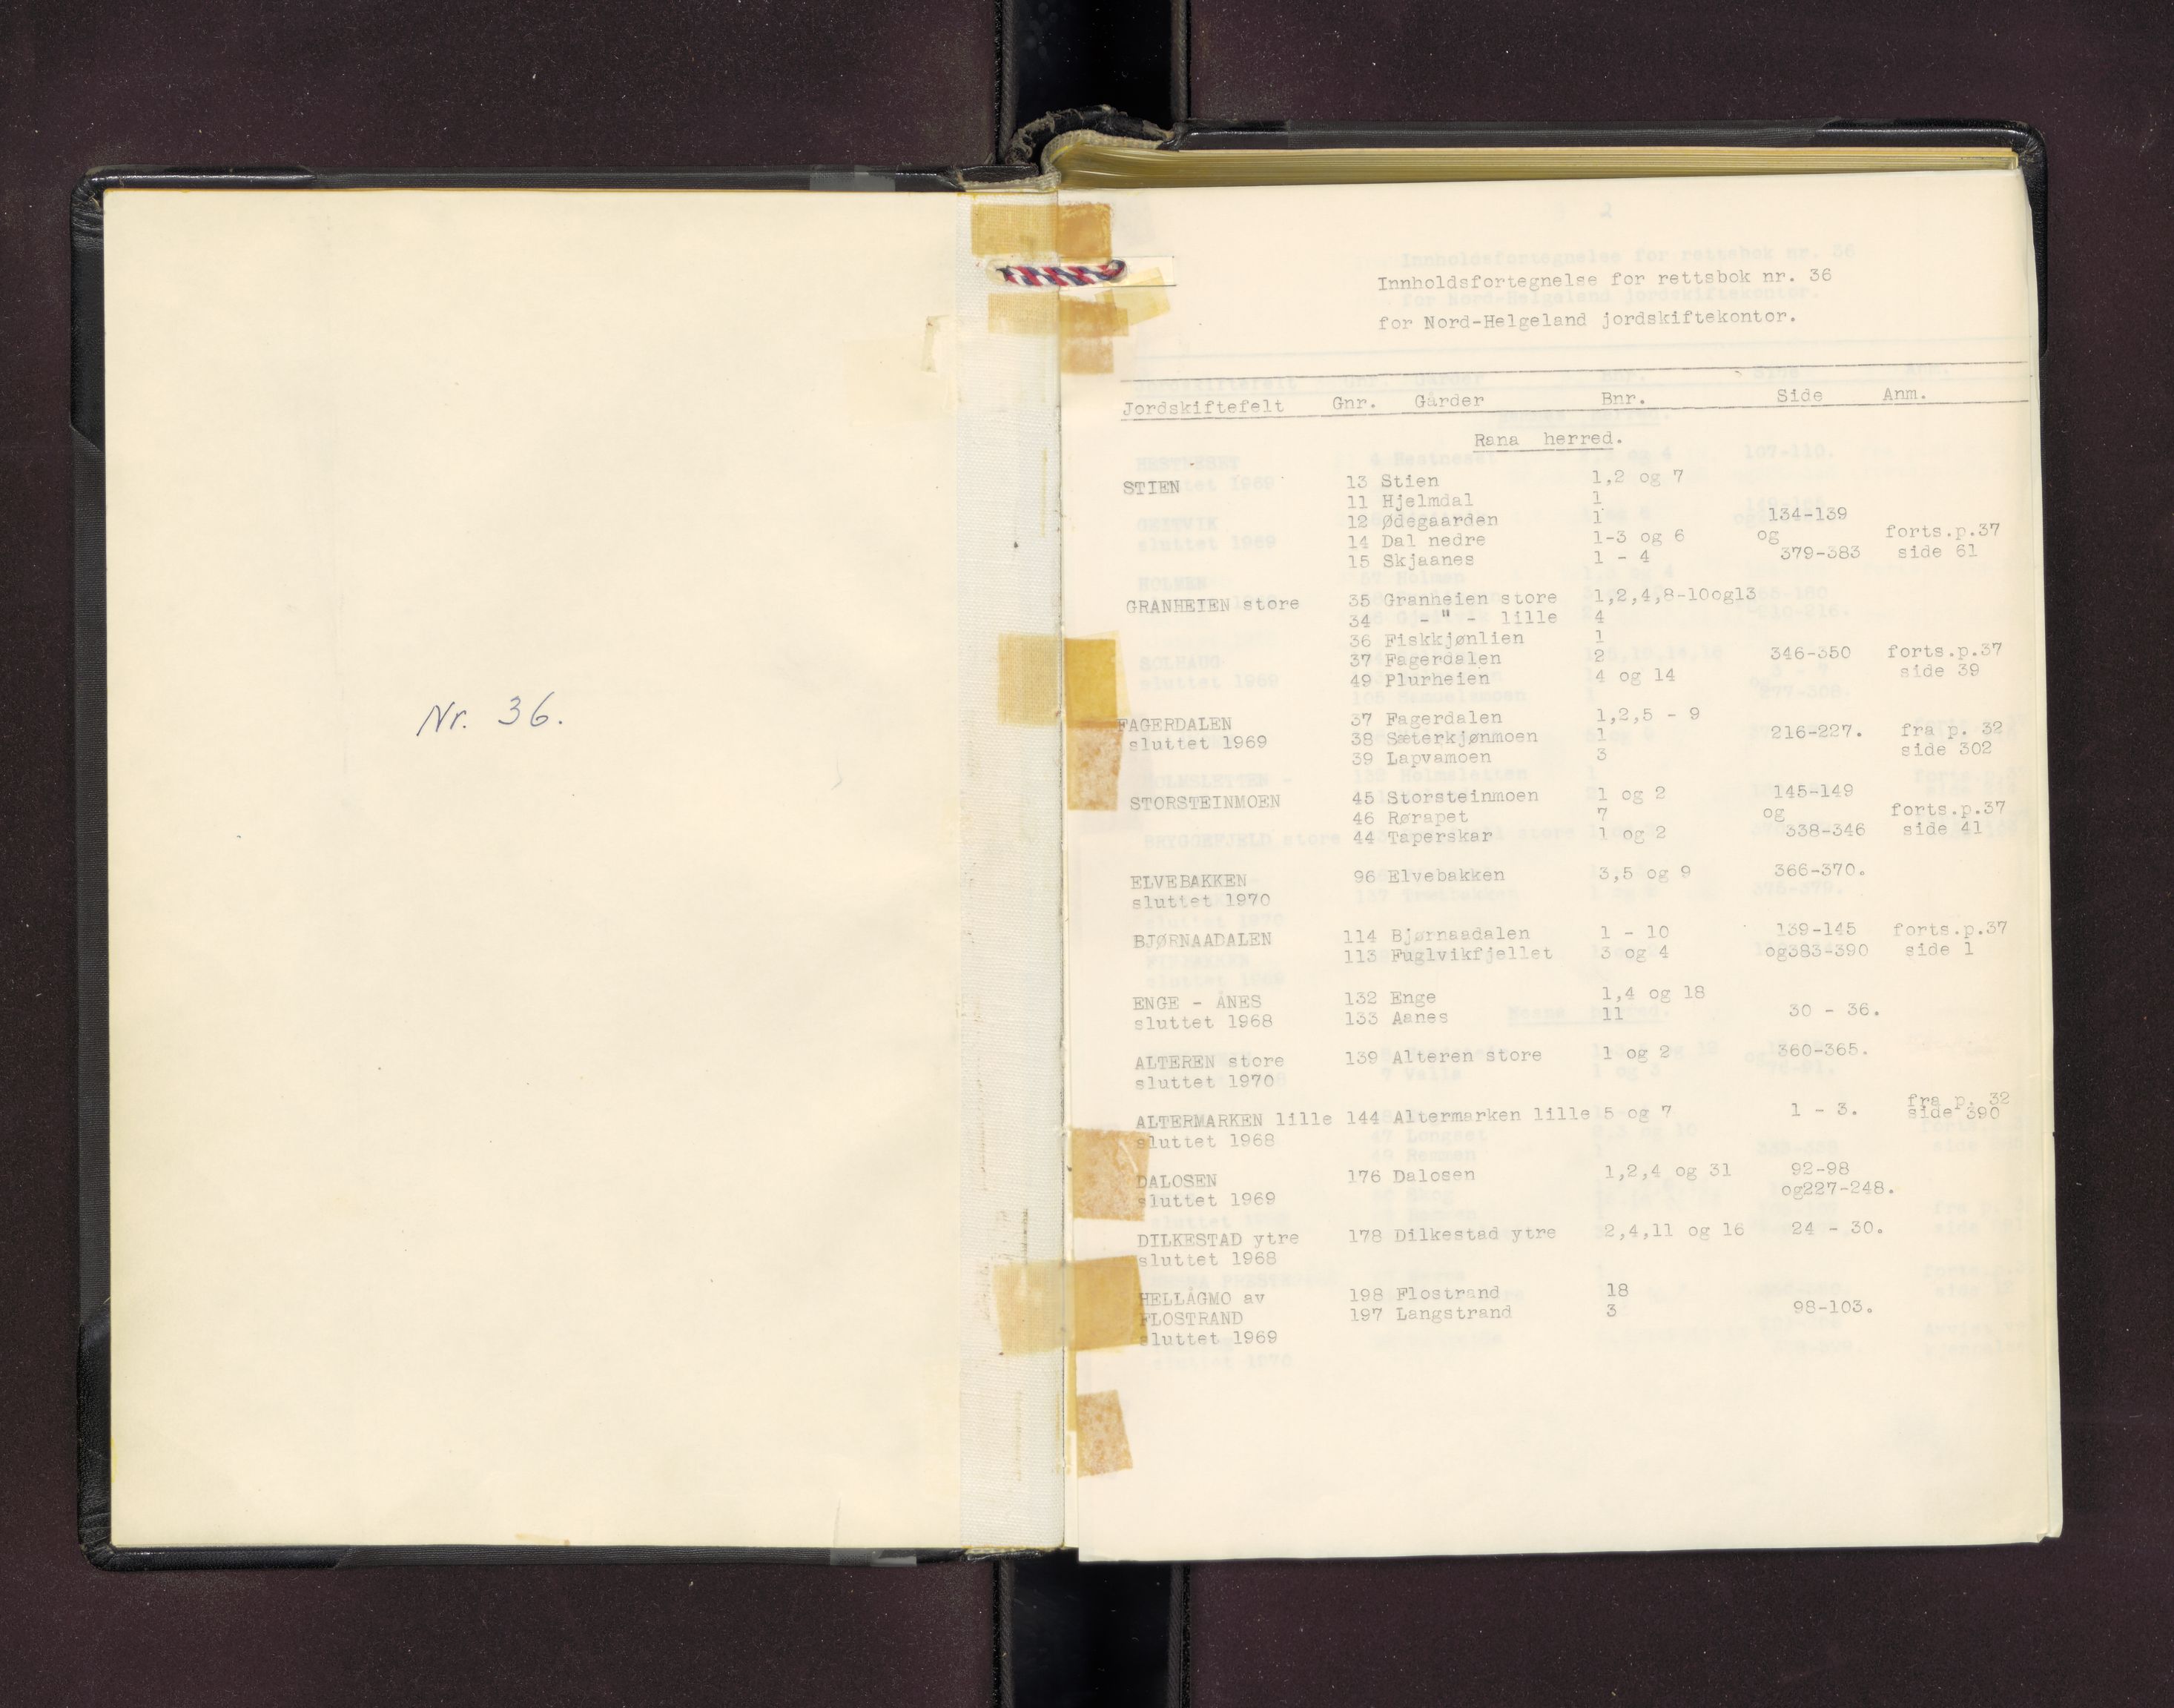 Nr. 36.
Innholdsfortegnelse for rettsbok nr. 36
for Nord-Helgeland jordskiftekontor.
Jordskiftefelt Gnr. Gårder Bnr. Side Anm.
Rana herred.
STIEN 13 Stien 1,2 og 7
11 Hjelmdal 1
12 Ødegaarden 1 134-139
14 Dal nedre 1-3 og 6 og forts.p.37
15 Skjaanes 1 - 4 379-383 side 61
GRANHEIEN store 35 Granheien store 1,2,4,8-10og13
34 - " - lille 4
36 Fiskkjønlien 1
37 Fagerdalen 2 346-350 forts.p.37
49 Plurheien 4 og 14 side 39
FAGERDALEN 37 Fagerdalen 1,2,5 - 9
sluttet 1969 38 Sæterkjønmoen 1 216-227. fra p. 32
39 Lapvamoen 3 side 302
STORSTEINMOEN 45 Storsteinmoen 1 og 2 145-149
46 Rørapet 7 og forts.p.37
44 Taperskar 1 og 2 338-346 side 41
ELVEBAKKEN 96 Elvebakken 3,5 og 9 366-370.
sluttet 1970
BJØRNAADALEN 114 Bjørnaadalen 1 - 10 139-145 forts.p.37
113 Fuglvikfjellet 3 og 4 og383-390 side 1
ENGE - ÅNES 132 Enge 1,4 og 18
sluttet 1968 133 Aanes 11 30 - 36.
ALTEREN store 139 Alteren store 1 og 2 360-365.
sluttet 1970
ALTERMARKEN lille 144 Altermarken lille 5 og 7 1 - 3. fra p. 32
sluttet 1968 side 390
DALOSEN 176 Dalosen 1,2,4 og 31 92-98
sluttet 1969 og227-248.
DILKESTAD ytre 178 Dilkestad ytre 2,4,11 og 16 24 - 30.
sluttet 1968
HELLÅGMO av 198 Flostrand 18
FLOSTRAND 197 Langstrand 3 98-103.
sluttet 1969